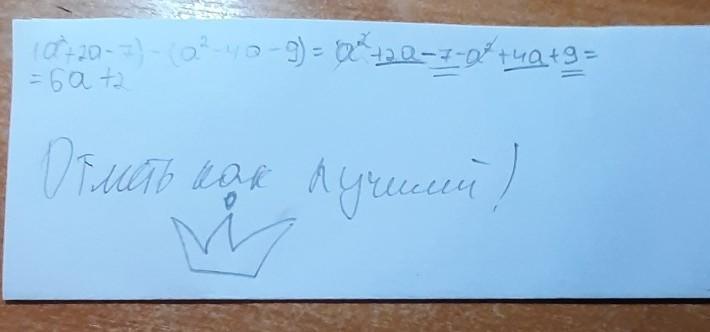 (a²+2a-7)-(a²-4a-9)=a²+2a-7-a²+4a+9=
=6a+2
Отметь как лучший!